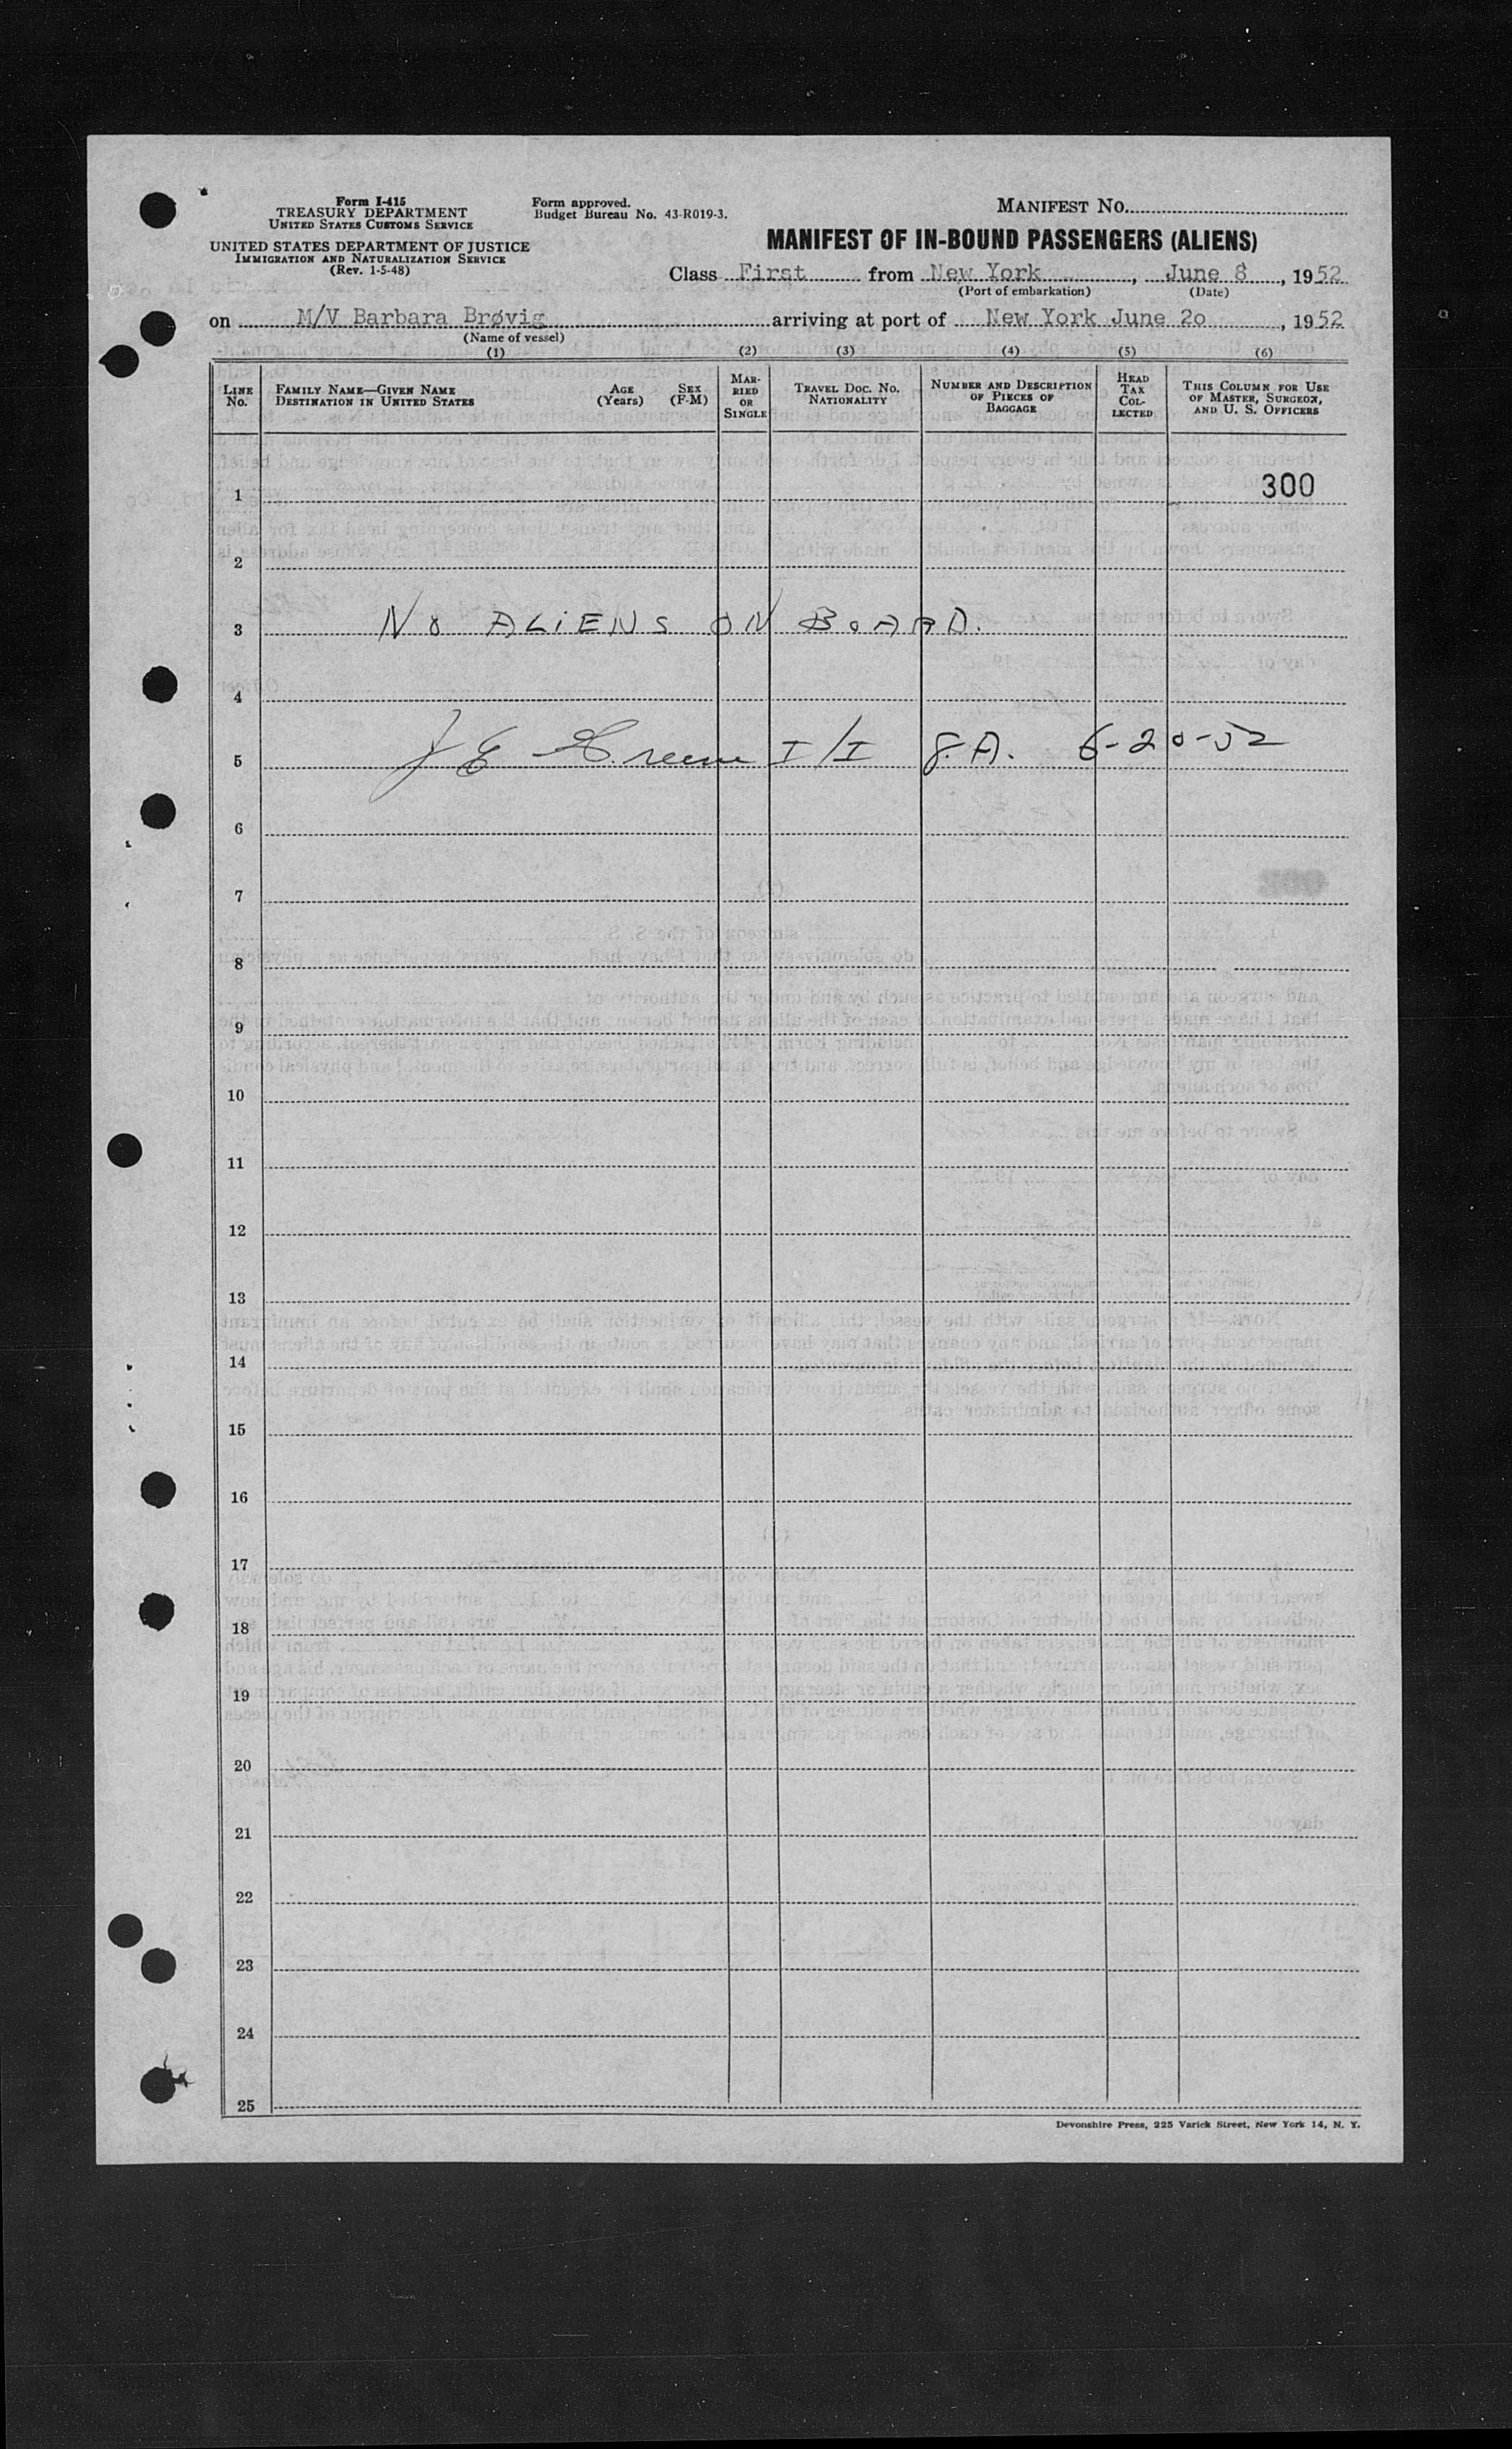 Form I-415
TREASURY DEPARTMENT
UNITED STATES CUSTOMS SERVICE
UNITED STATES DEPARTMENT OF JUSTICE
IMMIGRATION AND NATURALIZATION SERVICE
(Rev. 1-5-48)
Form approved.
Budget Bureau No. 43-R019-3.
MANIFEST NO.
MANIFEST OF IN-BOUND PASSENGERS (ALIENS)
Class First from New York, June 8, 1952
(Port of embarkation) (Date)
on M/V Barbara Brøvig arriving at port of New York June 20, 1952
(Name of vessel)
(1) (2) (3) (4) (5) (6)
LINE No.
FAMILY NAME—GIVEN NAME
DESTINATION IN UNITED STATES
AGE (Years)
SEX (F-M)
MARRIED OR SINGLE
TRAVEL DOC. NO.
NATIONALITY
NUMBER AND DESCRIPTION OF PIECES OF BAGGAGE
HEAD TAX COLLECTED
THIS COLUMN FOR USE OF MASTER, SURGEON, AND U. S. OFFICERS
1 300
2
3 NO ALIENS ON BOARD.
4
5 J E Greene I/I 6-20-52
6
7
8
9
10
11
12
13
14
15
16
17
18
19
20
21
22
23
24
25
Devonshire Press, 225 Varick Street, New York 14, N. Y.